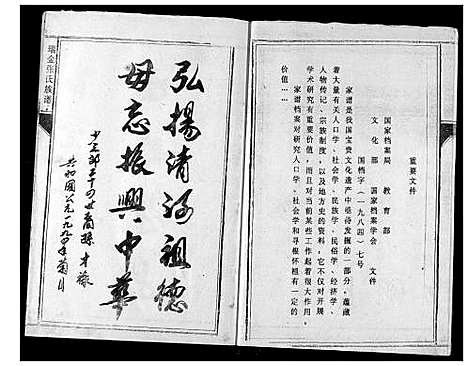 重要文件
国家档案局 教育部
文化部 国家档案学会 文件
国档字（一九八四）七号
家谱是我国宝贵文化遗产中亟待发掘的一部分，蕴藏
着大量有关人口学、社会学、民族学、民俗学、经济学、
人物传记、宗族制度，以及地方史的资料，它不仅对开展
学术研究有重要价值，而且对当前某些工作起着很大作用……
家谱档案对研究人口学、社会学和寻根怀祖有一定的
价值……
瑞金张氏族谱
弘揚清河祖德
毋忘振興中華